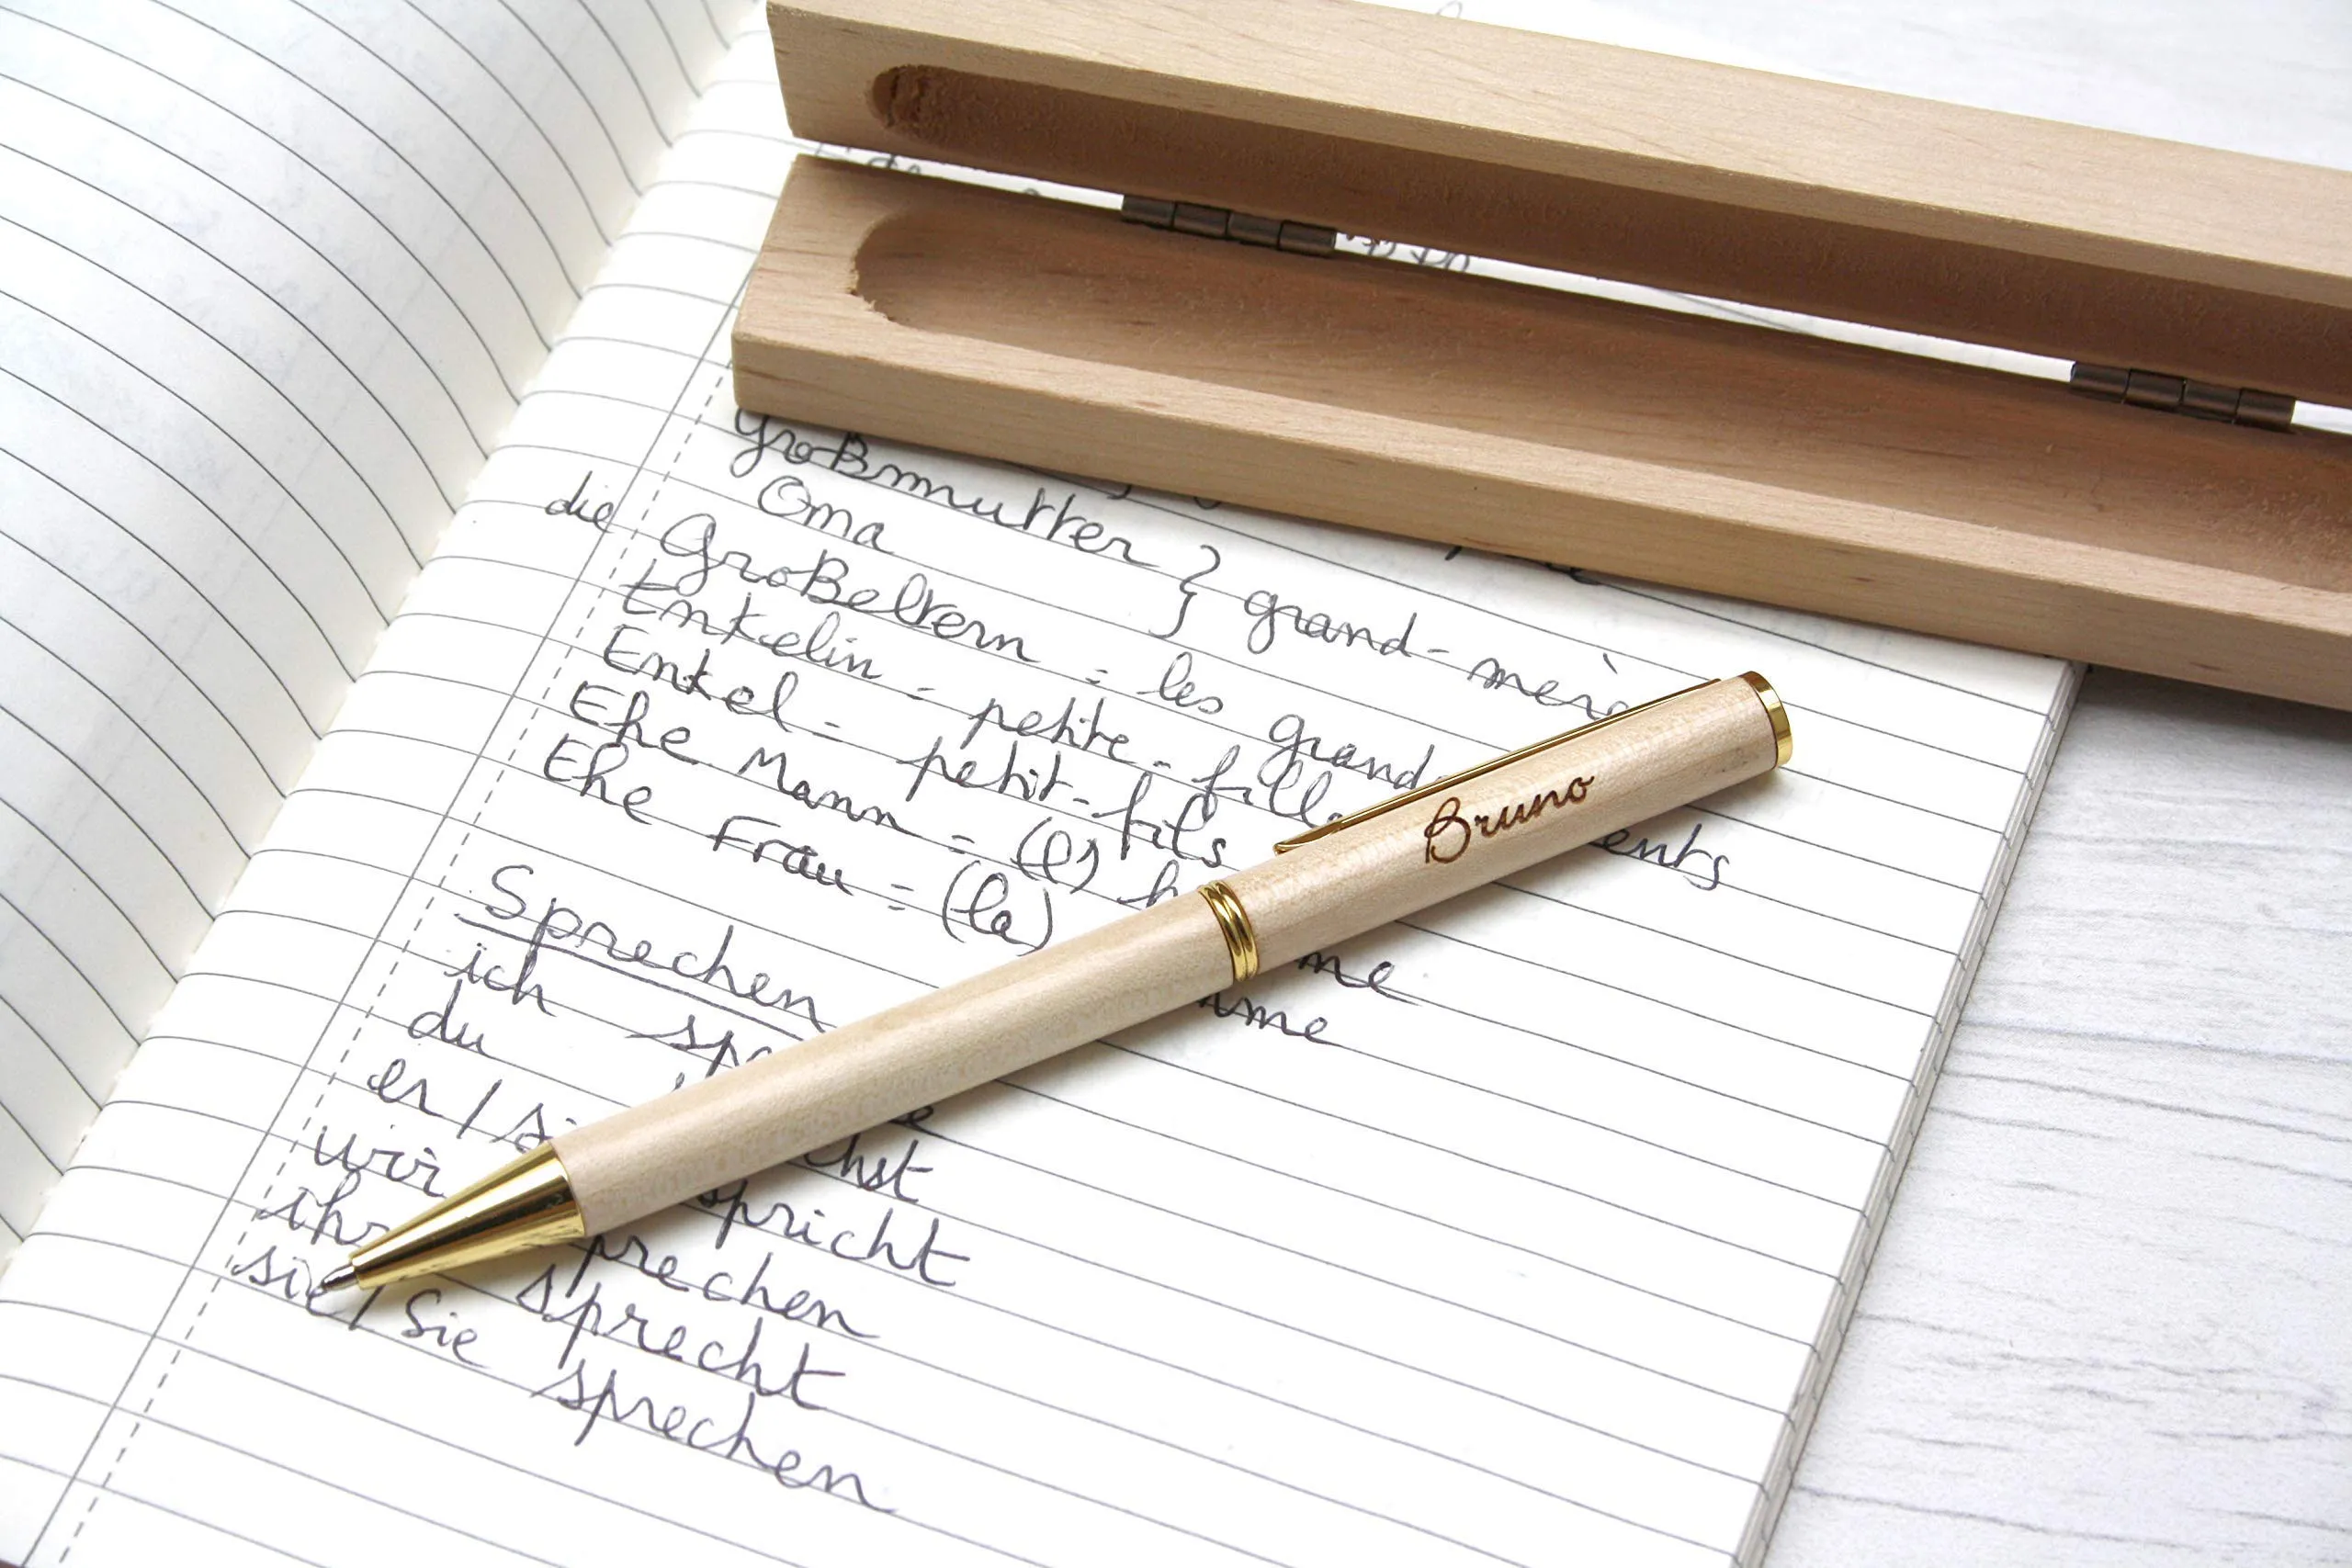 Großmutter
Oma } grand-mère
die Großeltern = les grands
ents
Enkelin = petite-fille
Enkel = petit-fils
Ehe Mann = (le) h
me
Ehe Frau = (la)
mme
Sprechen
ich
du
chst
er / spricht
wir prechen
ihr sprecht
sie / Sie sprechen
Bruno